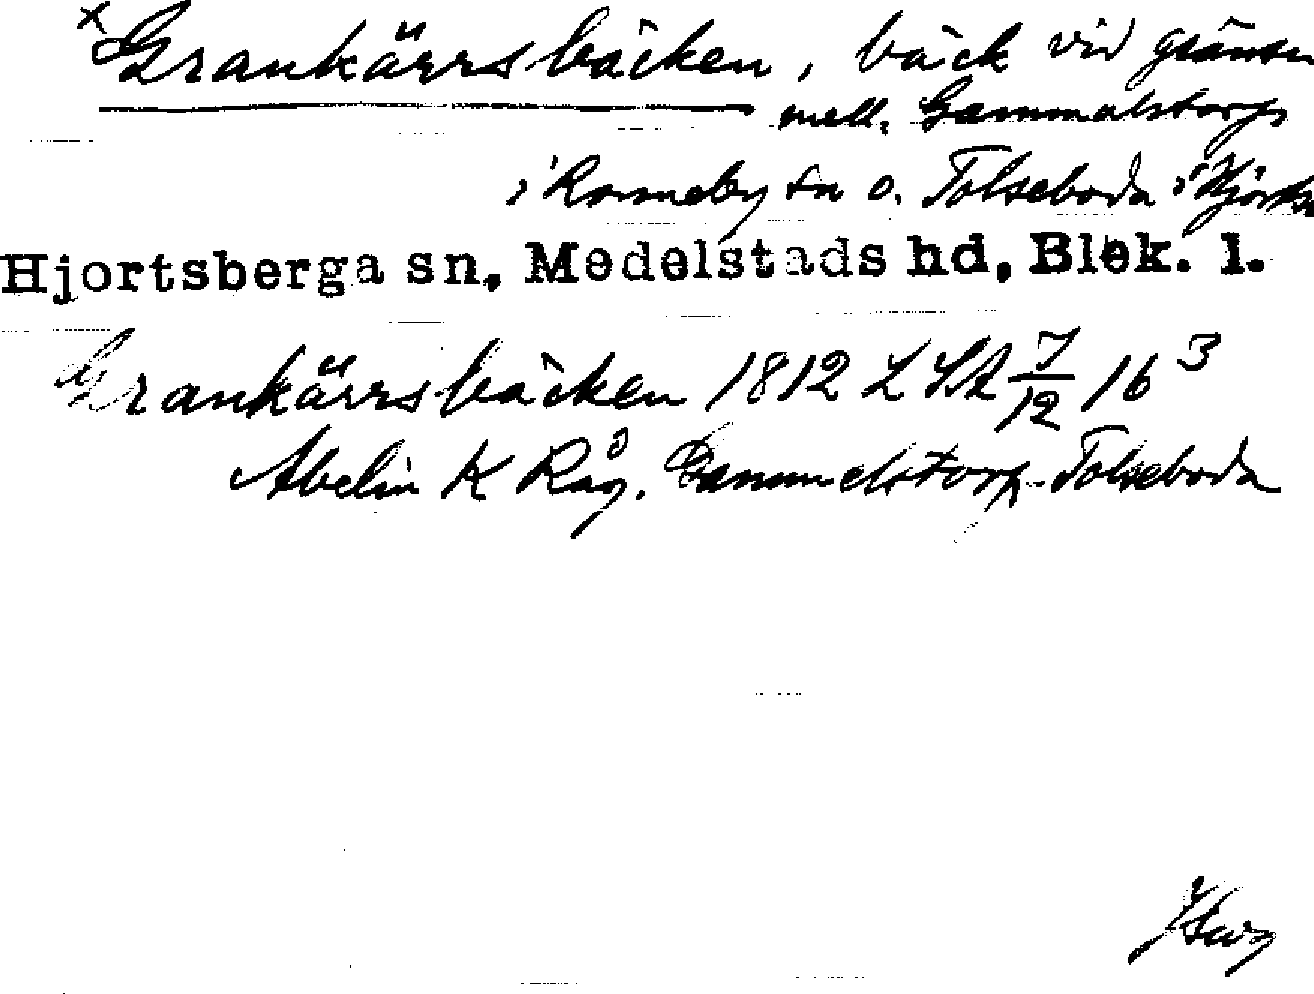 x Grankärrsbäcken, bäck vid gränsen
mell. Gammalstorp
i Ronneby sn o. Tolseboda i Hjorts
Hjortsberga sn, Medelstads hd, Blek. l.
Grankärrsbäcken 1812 L St 7/12 16 3
Abelin K Råg. Gammelstorp-Tolseboda